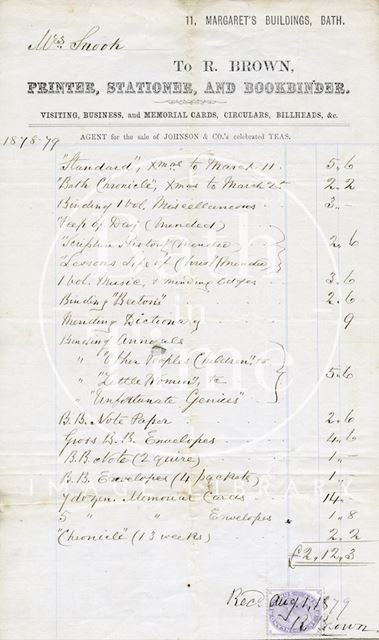 11, MARGARET'S BUILDINGS, BATH.
Mrs. Snook
To R. BROWN,
PRINTER, STATIONER, AND BOOKBINDER.
VISITING, BUSINESS, and MEMORIAL CARDS, CIRCULARS, BILLHEADS, &c.
AGENT for the sale of JOHNSON & CO.'s celebrated TEAS.
1878-79
"Standard", Xmas to March 11 . 5.6
"Bath Chronicle", Xmas to March 25 2.2
Binding 1 vol. Miscellaneous . 3.-
Peep of Day (Mended)
"Scripture History" (Mended) 2.6
"Lessons Life of (Mended)
1 vol. Music, & mending edges . 3.6
Binding "Beeton" 2.6
Mending Dictionary 9
Binding Annuals
" "Other Peoples Children" &
" "Little Women", &c 5.6
" "Unfortunate Genius"
B.B. Note Paper 2.6
Gross B.B. Envelopes 4.6
B.B. Note (2 quire) 1.-
B.B. Envelopes (4 packets) 1.-
7 dozen Memorial Cards 14.-
5 " " Envelopes 1.8
"Chronicle" (13 weeks) 2.2
£2,12,3
Recd. Aug. 1, 1879
R. Brown
Bath in Time